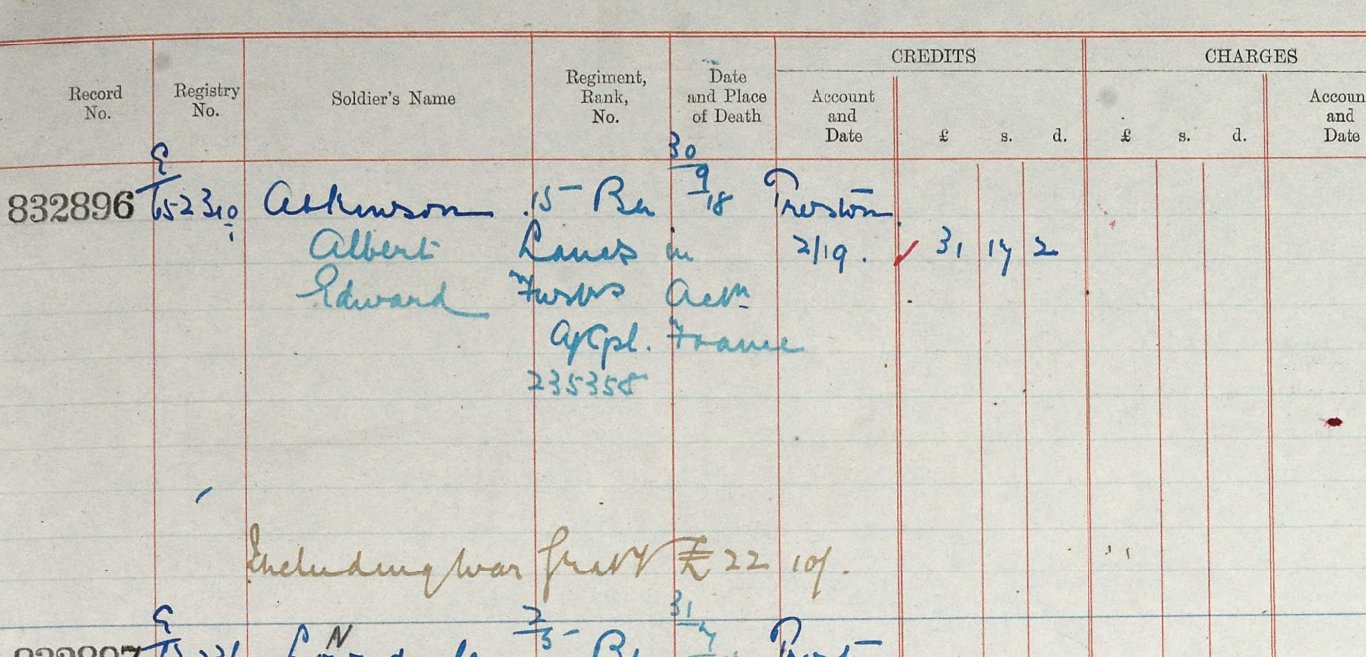 CREDITS CHARGES
Record No. Registry No. Soldier's Name Regiment, Rank, No. Date and Place of Death Account and Date £ s. d. £ s. d. Accoun and Date
E 30
832896 /152310 Atkinson 15 Bn 9/18 Preston
1 Albert Lancs in 2/19. 31 17 2
Edward Fusrs Actn
A/Cpl. France
235358
Including War Grat £22 10/.
E 2/5 31
N Bn 7 Prest